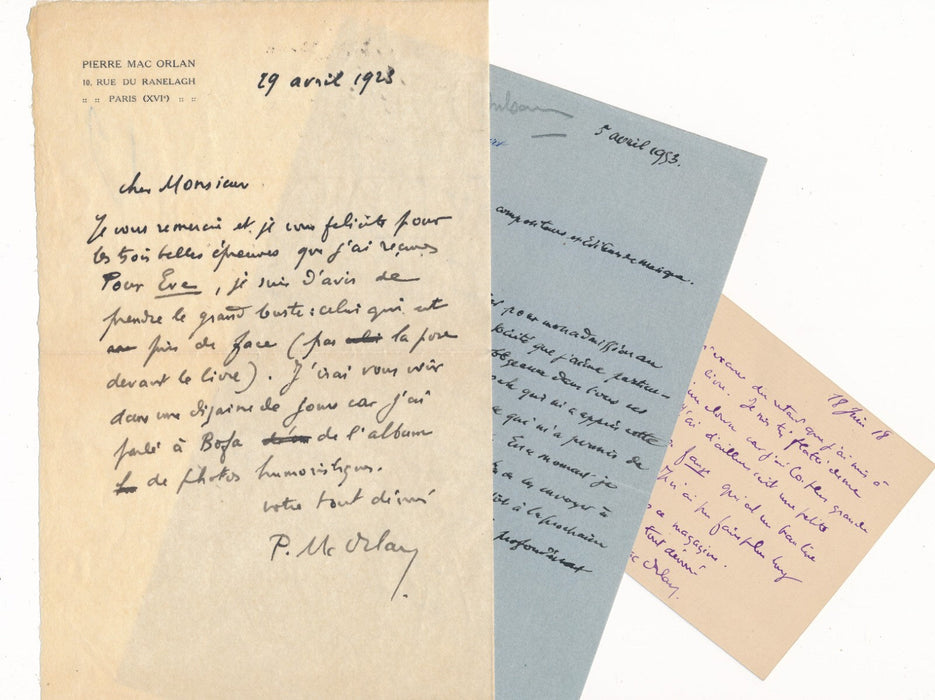 PIERRE MAC ORLAN
10, RUE DU RANELAGH
:: :: PARIS (XVIe) :: ::
29 avril 1923.
cher Monsieur
Je vous remercie et je vous felicite pour
les trois belles épreuves que j'ai reçues
Pour Eve, je suis d'avis de
prendre le grand buste : celui qui est
pris de face (pas la pose
devant le livre). J'irai vous voir
dans une dizaine de jours car j'ai
parlé à Bofa de l'album
de photos humoristiques.
votre tout dévoué
P. Mac Orlan
5 avril 1953.
compositeurs et Editeurs de musique.
pour mon admission au
que j'aime particu-
dans tous ses
qui m'a appris cette
qui m'a permis de
En ce moment je
envoyer à
à la prochaine
profondément
18 Juin 18
du retard que j'ai mis à
livre. Je suis très flatté de me
clown car j'ai la plus grande
j'ai d'ailleurs écrit une petite
farce qui est un
J'ai pu faire plus long
ce magazine.
tout dévoué
Mac Orlan.